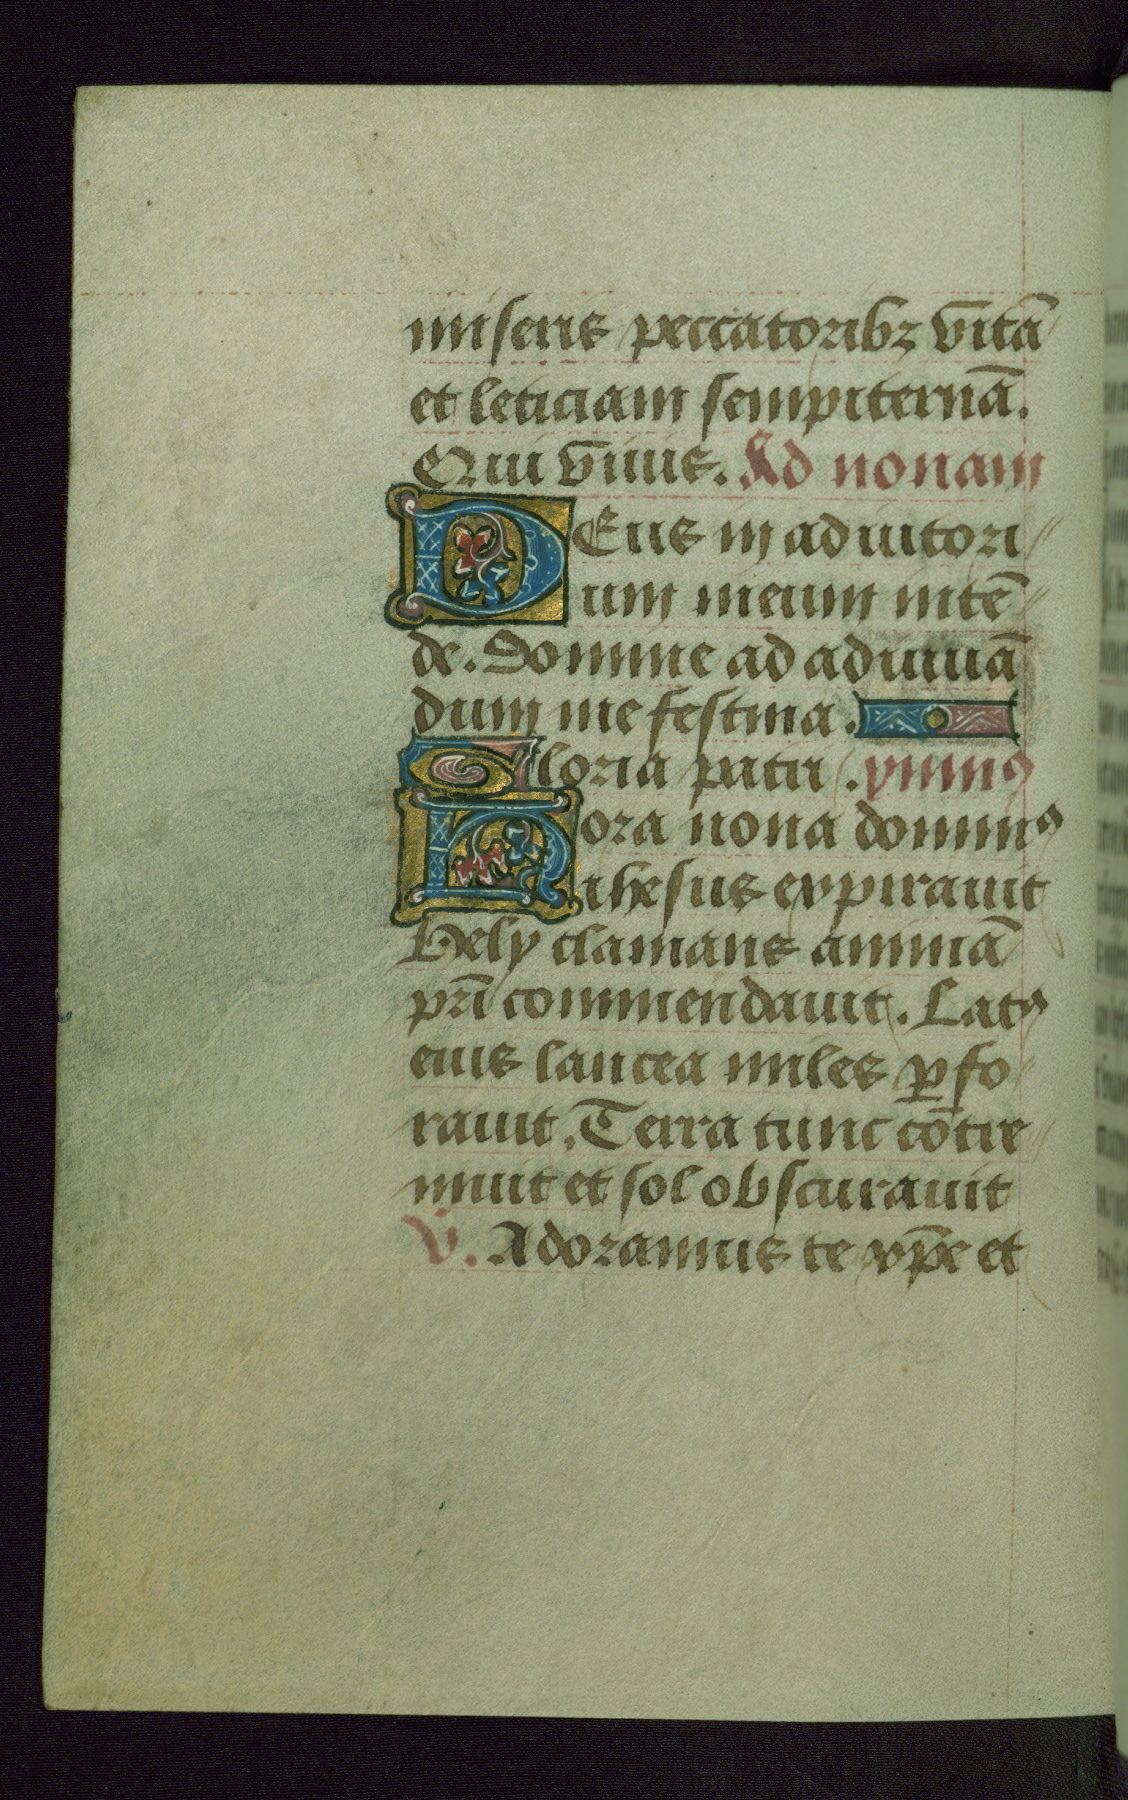 miseris peccatoribꝫ vitā
et leticiam sempiternā.
Qui viuis. Ad nonam
DEus in adiutori
um meum intē
de. Domine ad adiuuā
dum me festina.
Gloria patri. ymnꝰ
Hora nona dominꝰ
ihesus expirauit
Hely clamans animā
pri̅ commendauit. Latꝰ
eius lancea miles ꝑfo
rauit. Terra tunc cōtre
muit et sol obscurauit
V. Adoramus te xp̅e et